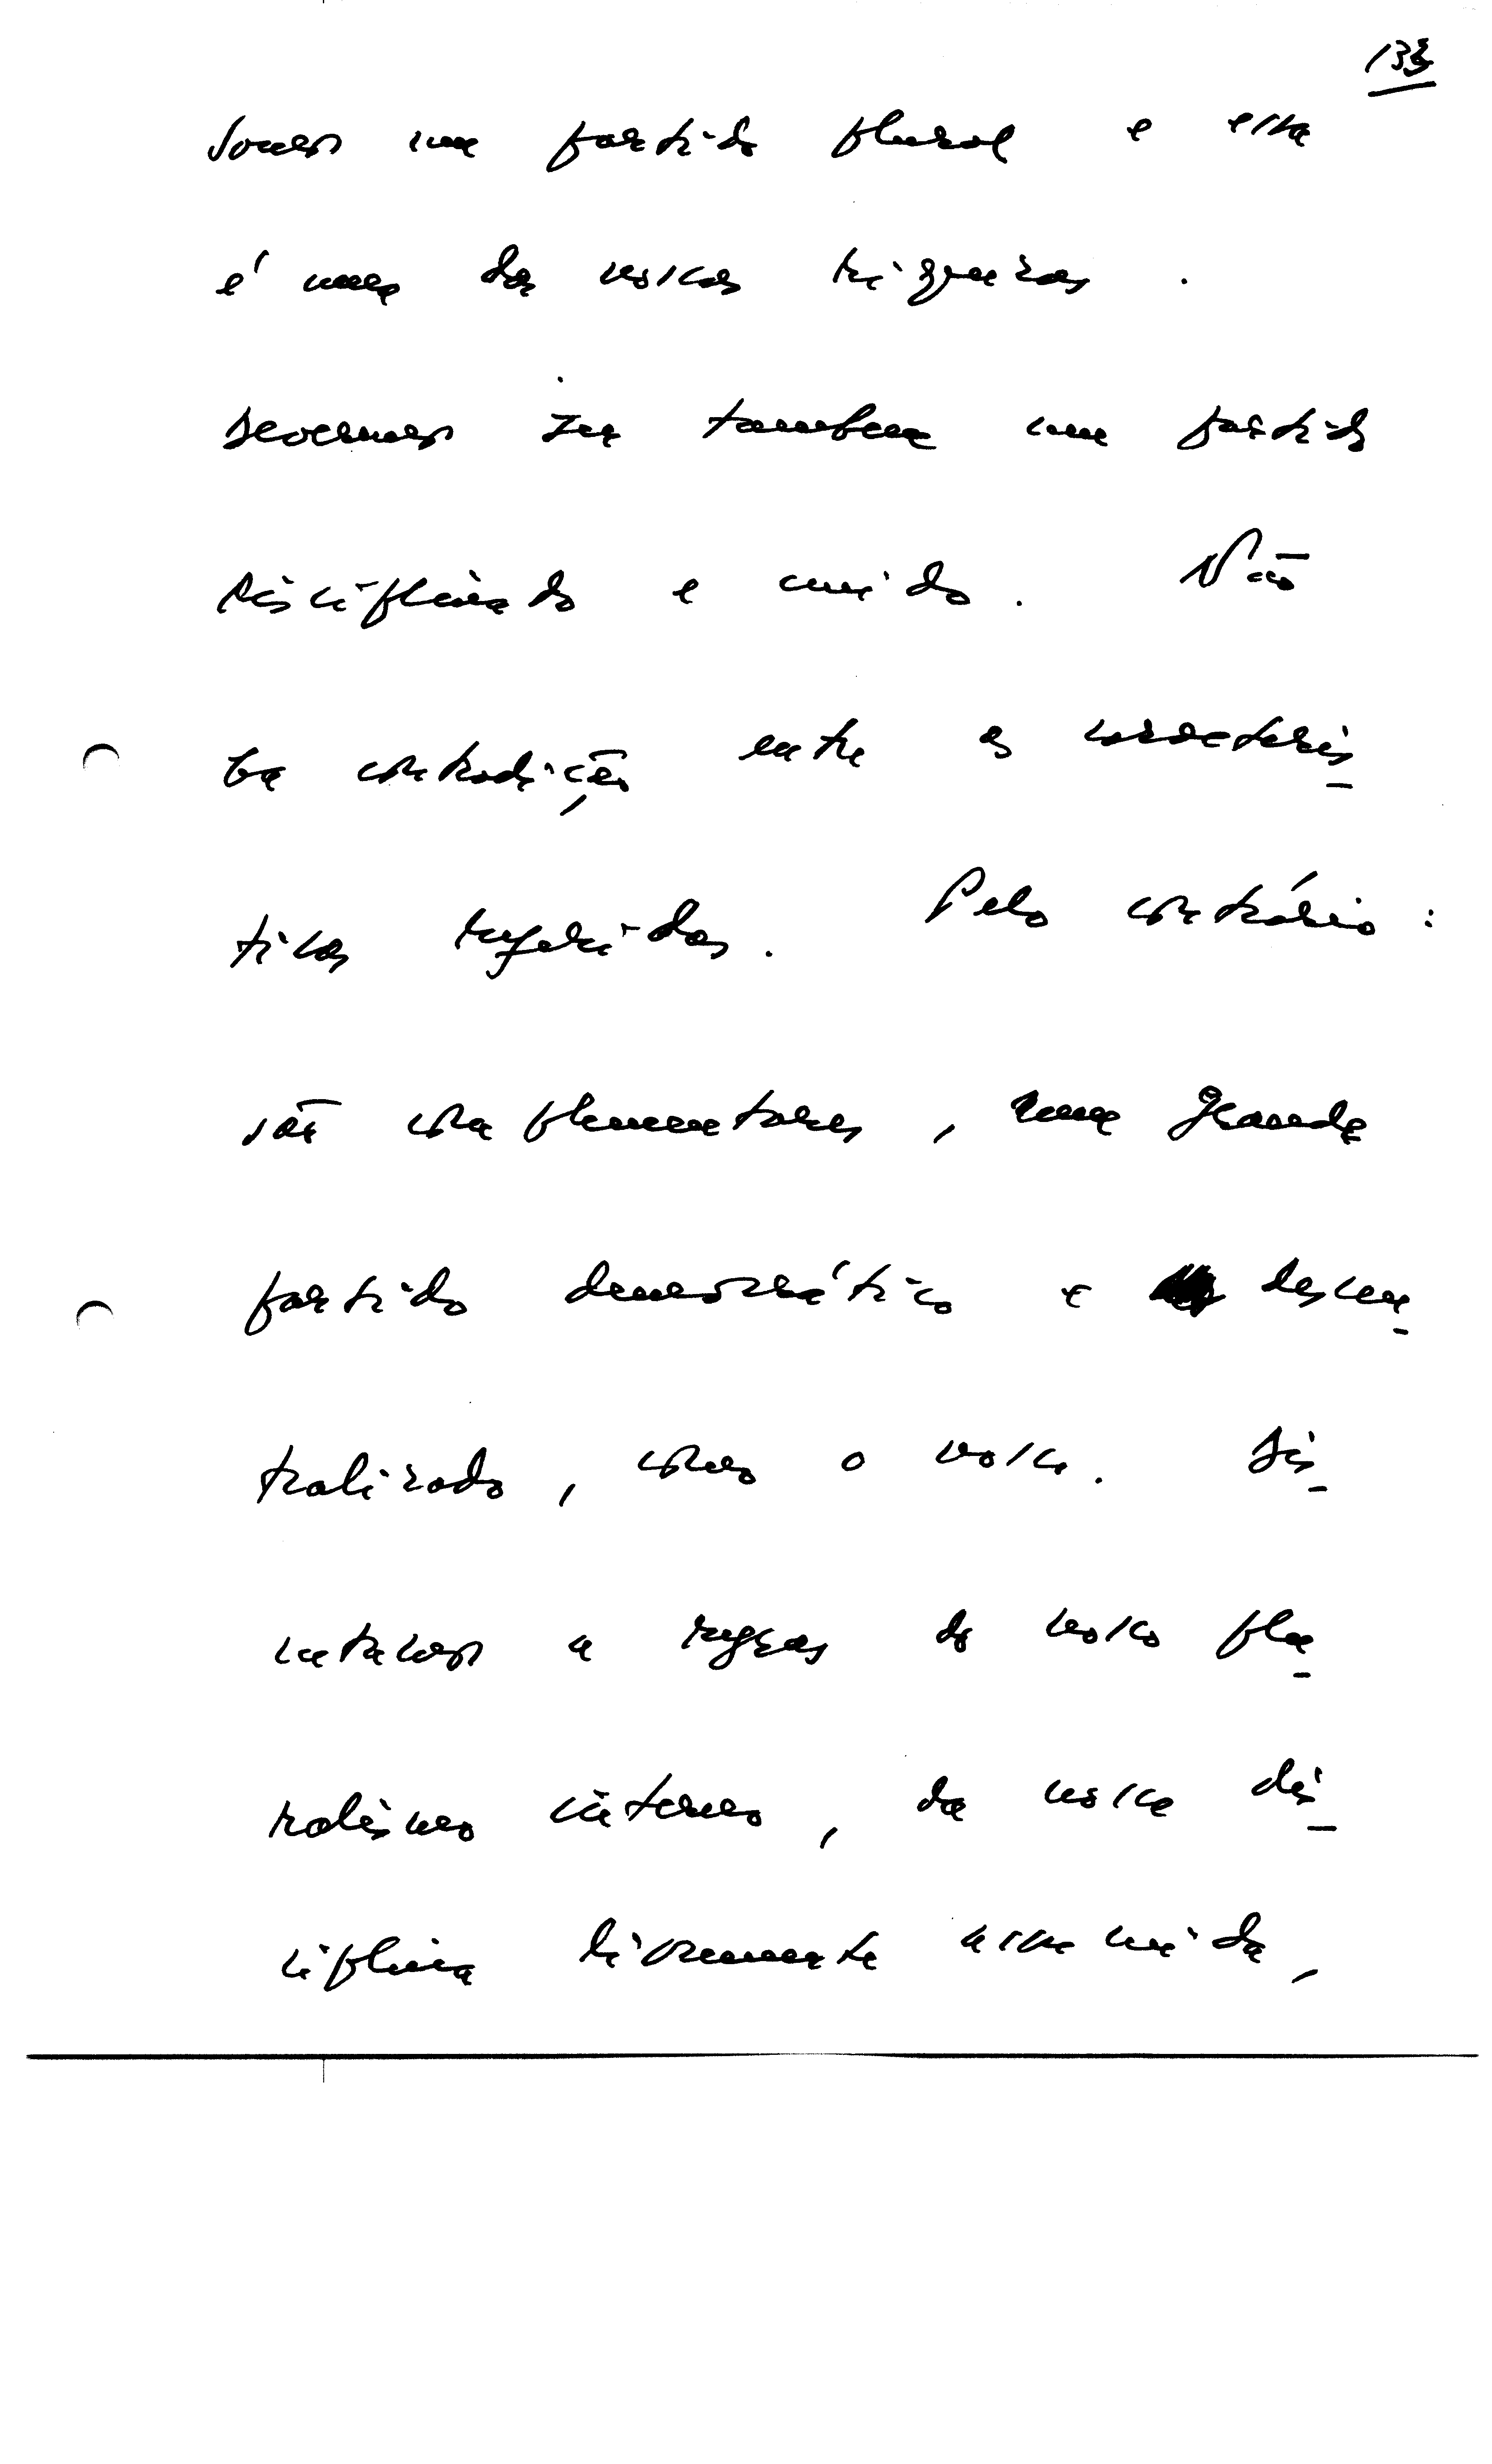 133
Somos um partido plural e essa
é uma das nossas riquezas.
Devemos ser também um partido
disciplinado e unido. Não
há contradição entre as caracterís-
ticas referidas. Pelo contrário:
são complementares, num grande
partido democrático e descen-
tralizado, como o nosso. Dis-
cutamos as regras do nosso plu-
ralismo interno, da nossa dis-
ciplina livremente assumida,